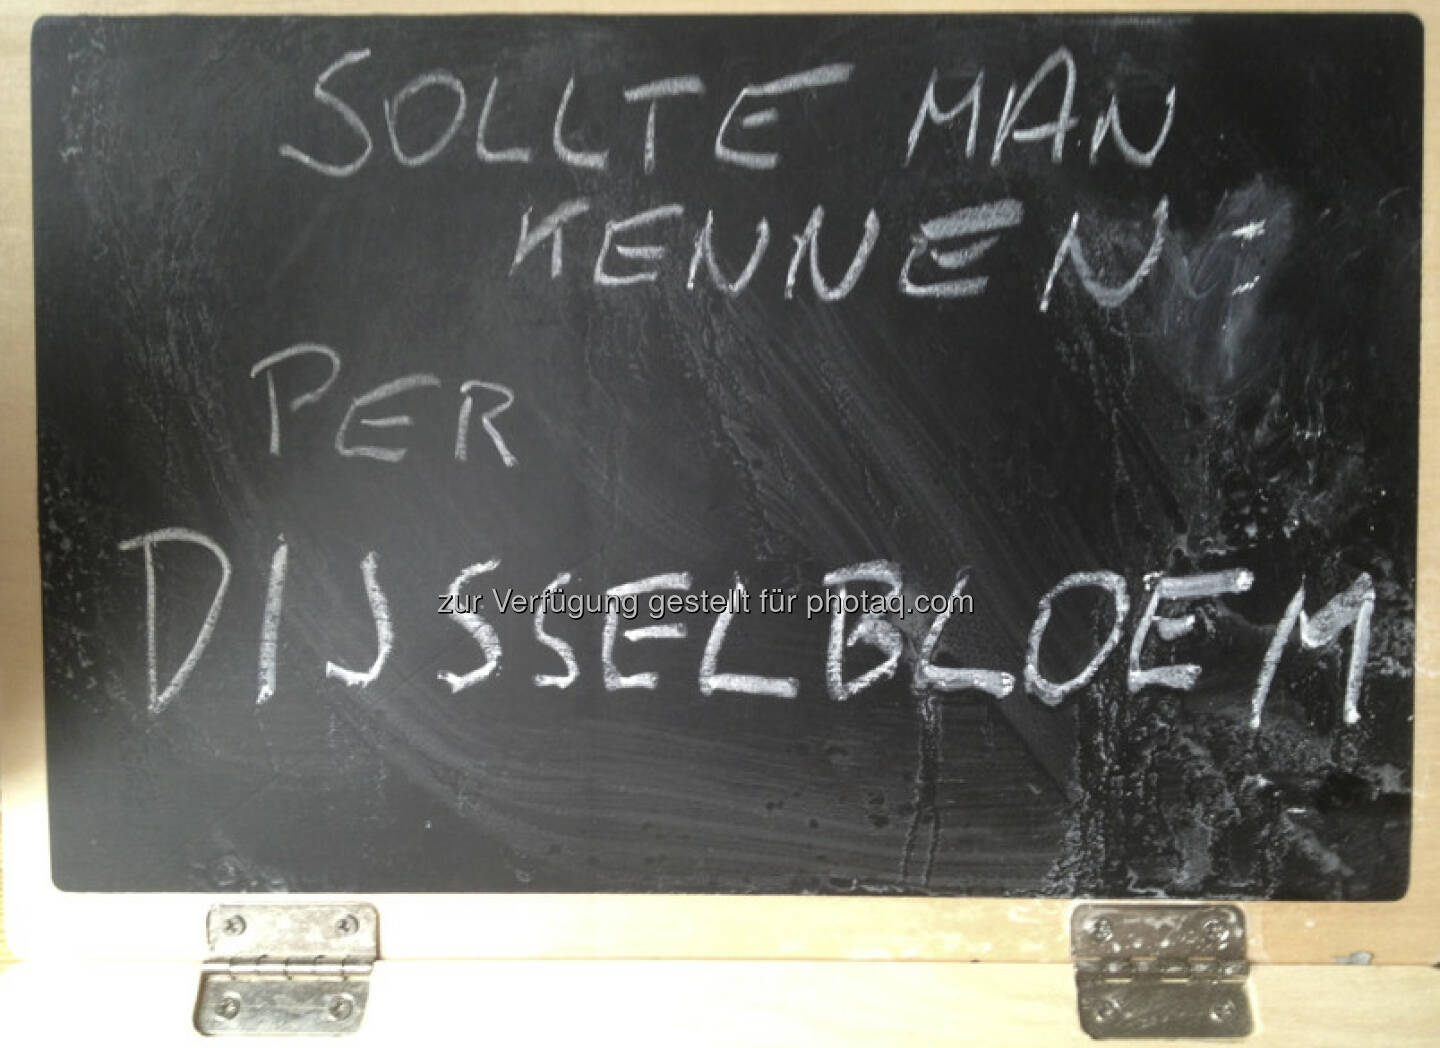 SOLLTE MAN
KENNEN:
PER
DIJSSELBLOEM
zur Verfügung gestellt für photaq.com